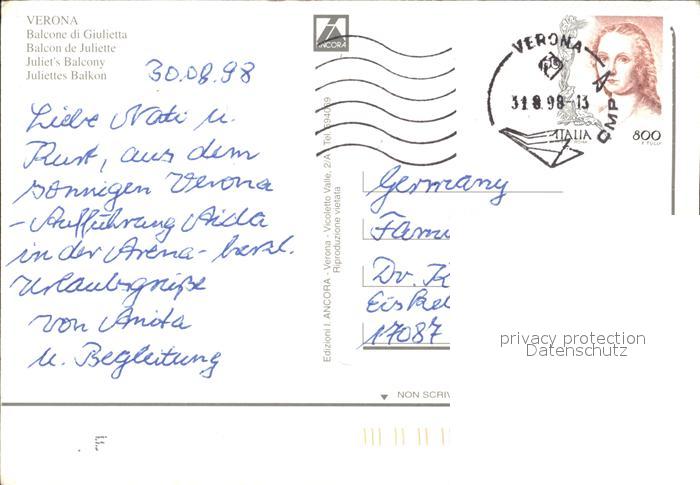 VERONA
Balcone di Giulietta
Balcon de Juliette
Juliet's Balcony
Juliettes Balkon
30.08.98
Liebe Nati u.
Kurt, aus dem
sonnigen Verona
- Aufführung Aida
in der Arena - herzl.
Urlaubsgrüße
von Anita
u. Begleitung
ANCORA
Edizioni I. ANCORA - Verona - Vicoletto Valle, 2/A
Riproduzione vietata
VERONA
31 8.98-13
CMP
ITALIA
ROMA
800
Germany
Fam
Dr. K
17087
privacy protection
Datenschutz
NON SCRIV